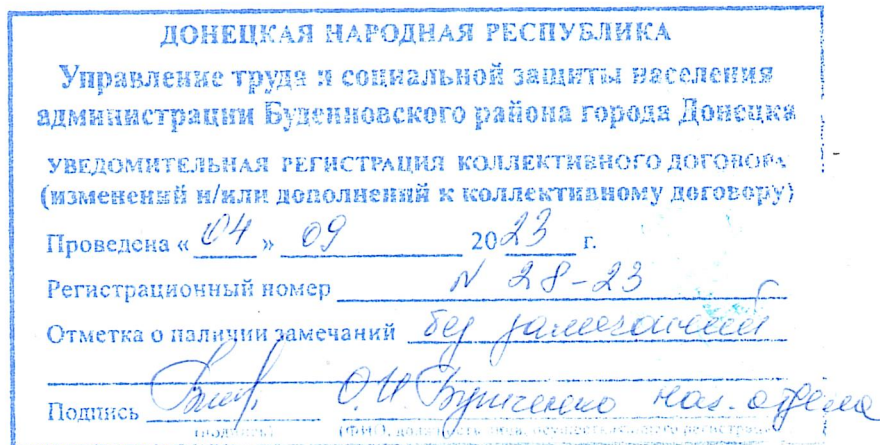 ДОНЕЦКАЯ НАРОДНАЯ РЕСПУБЛИКА
Управление труда и социальной защиты населения
администрации Буденновского района города Донецка
УВЕДОМИТЕЛЬНАЯ РЕГИСТРАЦИЯ КОЛЛЕКТИВНОГО ДОГОВОРА
(изменений и/или дополнений к коллективному договору)
Проведена « 04 » 09 2023 г.
Регистрационный номер N 28-23
Отметка о наличии замечаний без замечаний
Подпись О.И нач. отдела
(подпись) (ФИО, должность лица,